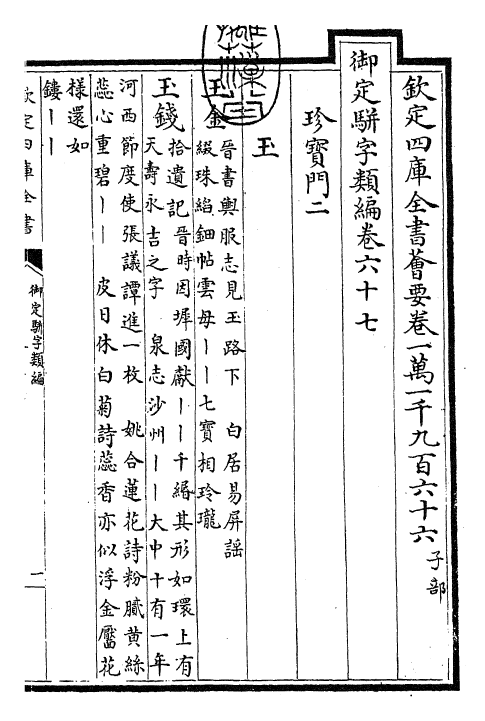 欽定四庫全書薈要卷一萬一千九百六十六 子部
御定駢字類編卷六十七
珍寶門二
玉
玉金 晉書輿服志見玉路下 白居易屏謡
綴珠縚鈿帖雲母丨丨七寶相玲瓏
玉錢 拾遺記晉時因墀國獻丨丨千緡其形如環上有
天壽永吉之字 泉志沙州丨丨大中十有一年
河西節度使張議譚進一枚 姚合蓮花詩粉膩黄絲
蕊心重碧丨丨 皮日休白菊詩蕊香亦似浮金靨花
様還如
鏤丨丨
欽定四庫全書
御定駢字類編